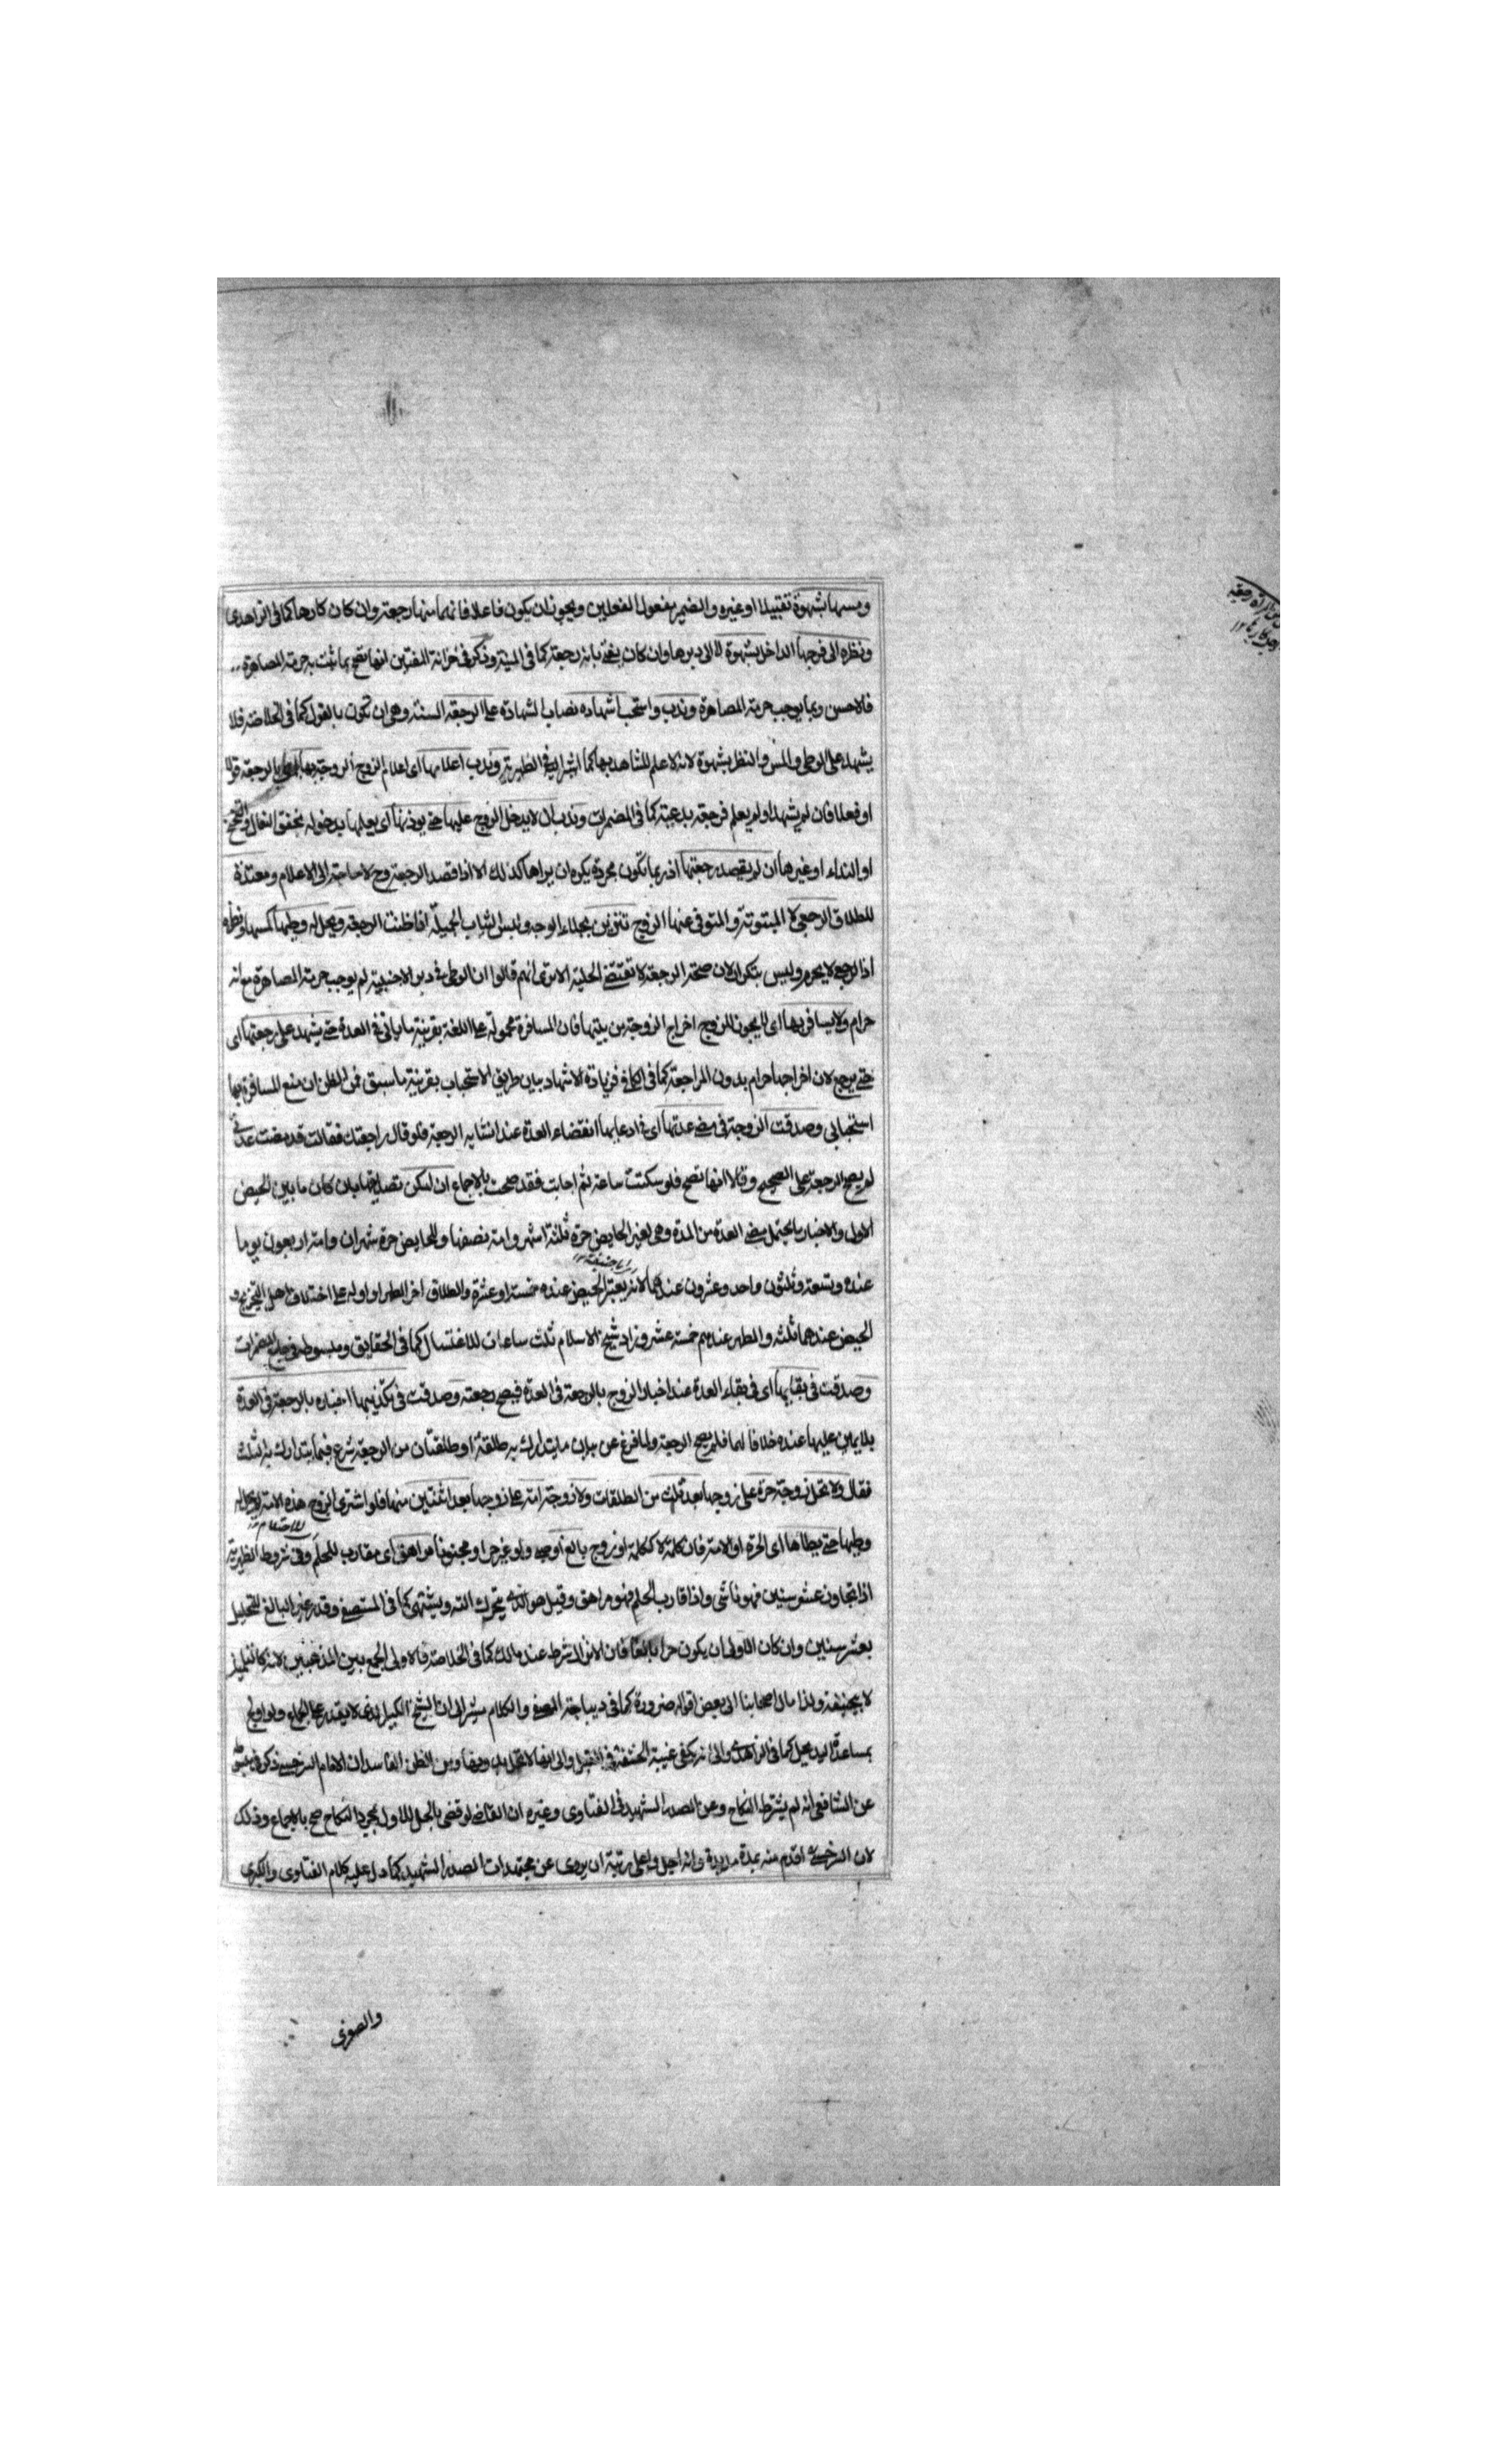 ومسها بشهوة تقبيلا او غيره والضمير مفعول الفعلين ويجوز ان يكون فاعلا فانهما منها رجعة وان كان كارها كما في الزاهدي
ونظره الى فرجها الداخل بشهوة لا الى دبرها وان كان يفتى بانه رجعة كما في المنية وذكر في خزانة المفتين انها تصح بما ثبت به حرمة المصاهرة
فالاحسن وبما يوجب حرمة المصاهرة وندب واستحب اشهاده نصاب الشهادة على الرجعة السنة وهي ان تكون بالقول كما في الخلاصة فلا
يشهد على الوطي والمس والنظر بشهوة لانه لا علم للشاهد بها كما اشير اليه في الظهيرية وندب اعلامها اى اعلام الزوج الزوجة بالرجعة قولا
او فعلا فان لم يشهد او لم يعلم فرجعة بدعية كما في المضمرات وندب ان لا يدخل الزوج عليها حتى يوذنها اى يعلمها بدخوله بخفق النعال والتنحنح
او النداء او غيرها ان لم يقصد رجعتها اذ ربما تكون مجردة يكره ان يراها كذلك الا اذا قصد الرجعة وح لا حاجة الى الاعلام ومعتدة
للطلاق الرجعي لا المبتوتة والمتوفى عنها الزوج تتزين بجلاء الوجه ولبس الثياب الجميلة اذا ظنت الرجعة ويحل له وطيها كمسها ونظره
اذا لرجع لا يحرم وليس بتكرار لان صحة الرجعة لا تقتضي الحلية الا يرى انهم قالوا ان الوطى في دبر الاجنبية لم يوجب حرمة المصاهرة مع انه
حرام ولا يسافر بها اى لا يجوز للزوج اخراج الزوجة من بيتها فان المسافرة محمولة على اللغة بقرينة ما ياتي في العدة حتى يشهد على رجعتها اى
حتى يرجع لان اخراجها حرام بدون المراجعة كما في الكافي فزيادة الاشهاد بيان طريق الاستحباب بقرينة ما سبق فمن الظن ان منع المسافرة بها
استحبابي وصدقت الزوجة في مضى عدتها اى في ادعايها انقضاء العدة عند انشايه الرجعة فلو قال راجعتك فقالت قد مضت عدتي
لم يصح الرجعة على الصحيح وقالا انها تصح فلو سكتت ساعة ثم اجابت فقد صحت بالاجماع ان امكن تصديقها بان كان ما بين الحيض
الاول والاخبار ما يحتمل مضى العدة من المدة وهي لغير الحايض حرة ثلثة اشهر وامة نصفها وللحايض حرة شهران وامة اربعون يوما
عنده وتسعة وثلثون واحد وعشرون عندهما لانه يعتبر الحيض عنده خمسة او عشرة والطلاق اخر الطهر او اوله على اختلاف اهل التخريج و
الحيض عندهما ثلثة والطهر عندهم خمسة عشر وزاد شيخ الاسلام ثلث ساعات للاغتسال كما في الحقايق ومبسوطه المضمرات
وصدقت في بقايها اى في بقاء العدة عند اخبار الزوج بالرجعة في العدة فيصح رجعته وصدقت في تكذيبها اخباره بالرجعة في العدة
بلا يمين عليها عنده خلافا لهما فلم يصح الرجعة ولما فرغ عن بيان ما يتدارك به طلقة او طلقتان من الرجعة شرع فيما يتدارك به ثلث
فقال ولا تحل زوجة حرة على زوجها بعد ثلث من الطلقات ولا زوجة امة على زوجها بعد اثنتين منها فلو اشترى الزوج هذه الامة لم يحل له
وطيها حتى يطاها اى الحرة او الامة فان كلمة لا ككلمة او زوج بالغ او حر ولو غير حر او مجنونا مراهق اى مقارب للحلم وفي شروط الظهيرية
اذا تجاوز عشر سنين فهو ناشى واذا قارب الحلم فهو مراهق وقيل هو الذى يتحرك الته ويشتهى كما في المستصفى وقدر غير البالغ للتحليل
بعشر سنين وان كان الاولى ان يكون حرا بالغا فان الانزال شرط عند مالك كما في الخلاصة فالاولى الجمع بين المذهبين لانه كالتلميذ
لابيحنيفة ولذا مال اصحابنا الى بعض اقواله ضرورة كما في ديباجة المصفى والكلام مشير الى ان الشيخ الكبير الذى لا يقدر على الجماع ولو اولج
بمساعدة اليد يحل كما في الزاهدى والى انه يكفى غيبة الحشفة في القبل والى انها لا تحل به ومن الظن الفاسد ان الامام السرخسى ذكر في
عن الشافعى انه لم يشترط النكاح وعن الصدر الشهيد في الفتاوى وغيره ان القاضى لو قضى بالحل للاول بمجرد النكاح صح بالاجماع وذلك
لان السرخسى اقدم منه بمدة مديدة وانه اجل واعلى رتبة ان يروى عن مجتهدات الصدر الشهيد كما دل عليه كلام الفتاوى والكبرى
والصغرى